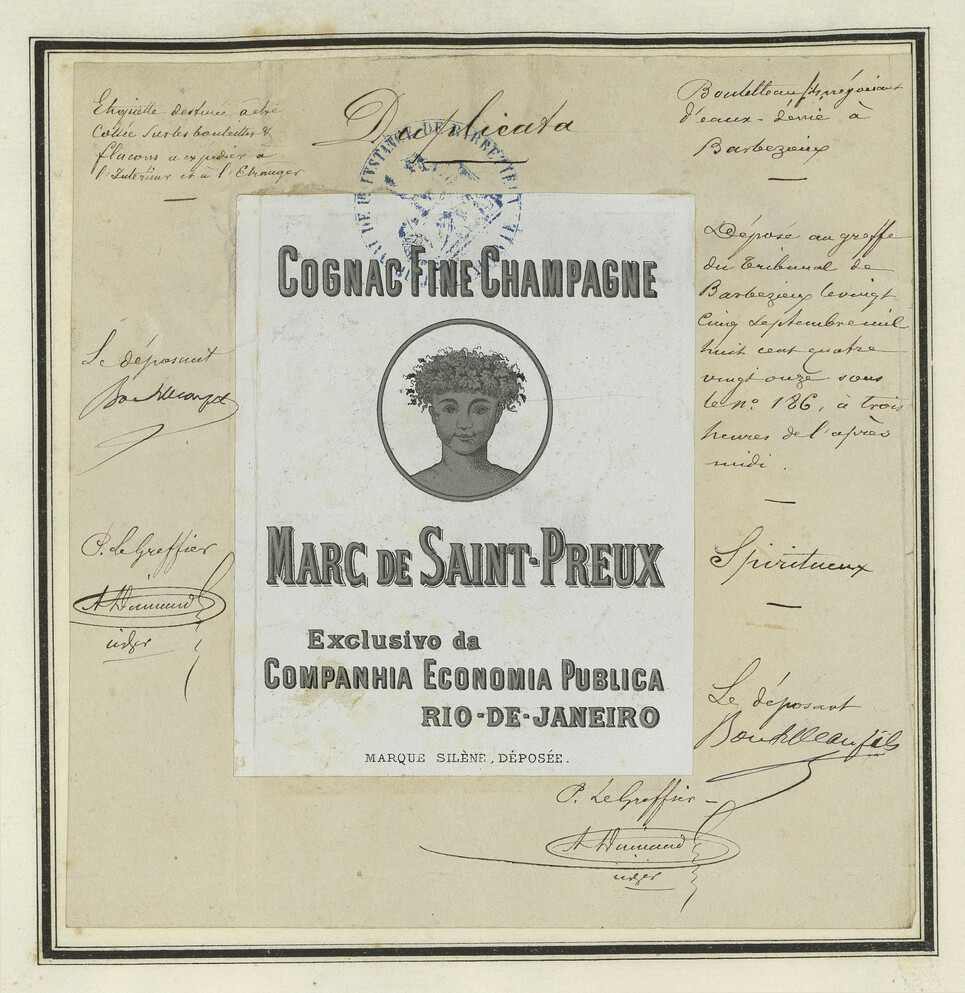 Etiquette destinée a etre
Collée sur les bouteilles &
flacons a expedier à
l'Intérieur et à l'Etranger
Duplicata
Boutelleau fils négociant
d'eaux-de-vie à
Barbezieux
COGNAC FINE CHAMPAGNE
MARC DE SAINT-PREUX
Exclusivo da
COMPANHIA ECONOMIA PUBLICA
RIO-DE-JANEIRO
MARQUE SILÈNE, DÉPOSÉE.
Le déposant
Boutelleau fils
P. le Greffier
Déposé au greffe
du Tribunal de
Barbezieux le vingt
cinq septembre mil
huit cent quatre
vingt onze sous
le nº 186, à trois
heures de l'après
midi.
Spiritueux
Le déposant
Boutelleau fils
P. Le Greffier